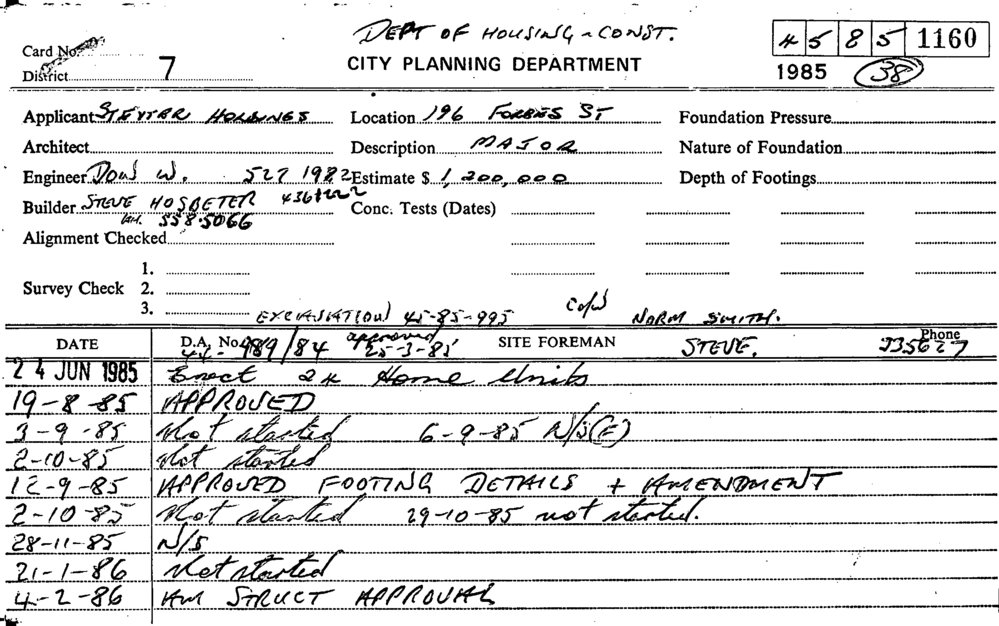 DEPT OF HOUSING & CONST.
4 5 8 5 1160
Card No.
CITY PLANNING DEPARTMENT
1985 38
District 7
Applicant STEYTAR HOLDINGS Location 196 FORBES ST Foundation Pressure
Architect Description MAJOR Nature of Foundation
Engineer DOW W. 527 1982 Estimate $ 1,200,000 Depth of Footings
Builder STEVE HOSBETER 4361222 Conc. Tests (Dates)
AH. 558.5066
Alignment Checked
1.
Survey Check 2.
3.
EXCAVATION 45-85-995 C of W NORM SMITH.
DATE D.A. No. 44- 989/84 approved 25-3-85 SITE FOREMAN STEVE. Phone 335627
24 JUN 1985 Erect 24 Home Units
19-8-85 APPROVED
3-9-85 Not started 6-9-85 N/S(E)
2-10-85 Not started
12-9-85 APPROVED FOOTING DETAILS + AMENDMENT
2-10-85 Not started 29-10-85 not started.
28-11-85 N/S
21-1-86 Not started
4-2-86 AM STRUCT APPROVAL